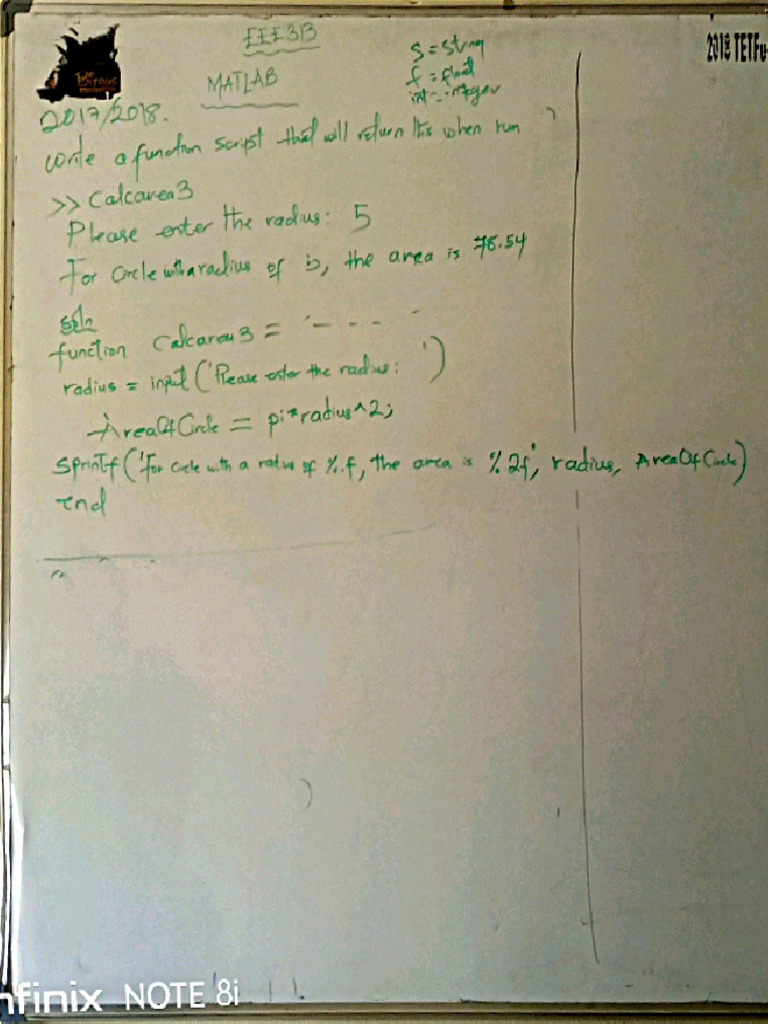 EEE313
MATLAB
S = string
f = float
int = integer
2018 TETFu
2017/2018.
Write a function script that will return this when run
>> Calcarea3
Please enter the radius: 5
For Circle with a radius of 5, the area is 78.54
Soln
function Calcarea3 = - - - -
radius = input ('Please enter the radius: ')
AreaOfCircle = pi*radius^2;
Sprintf ('For Circle with a radius of %.f, the area is %.2f', radius, AreaOfCircle)
end
nfinix NOTE 8i